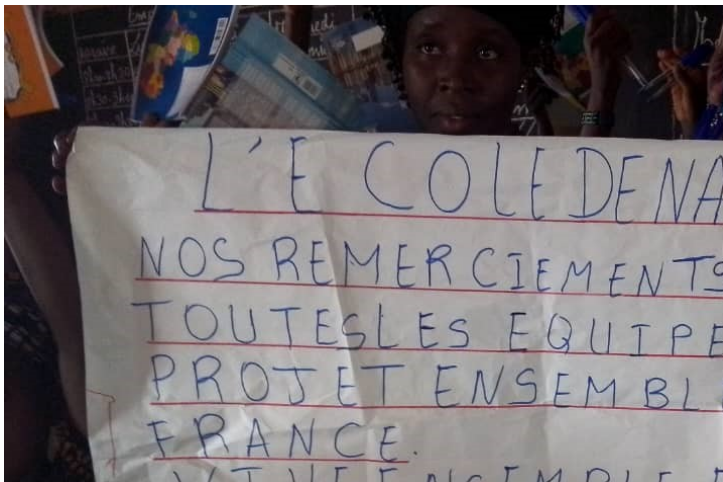 L'ECOLE DE NA
NOS REMERCIEMENTS
TOUTES LES EQUIPE
PROJET ENSEMBLE
FRANCE.
VIVE ENSEMBLE